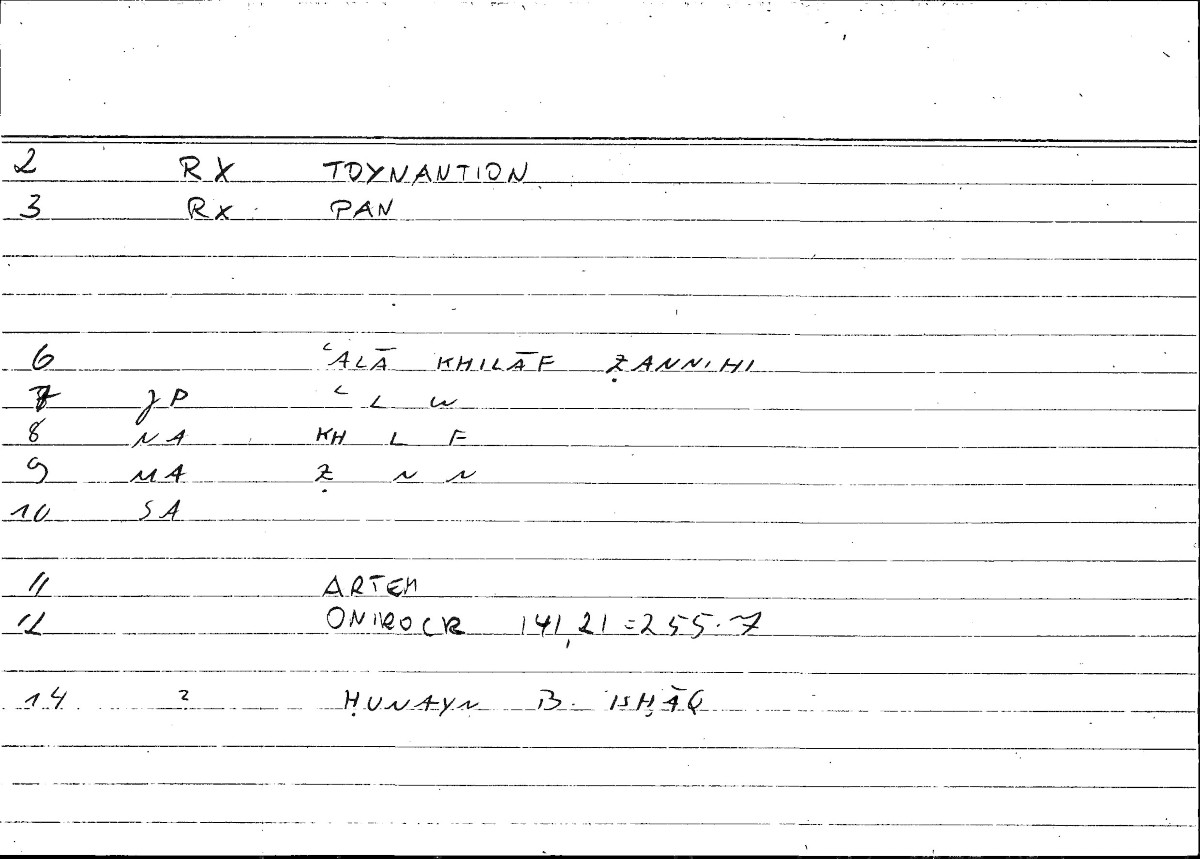 2 RX TOYNANTION
3 RX PAN
6 ʿALĀ KHILĀF ẒANNIHI
7 JP ʿ L W
8 NA KH L F
9 MA Ẓ N N
10 SA
11 ARTEM
12 ONIROCR 141,21=255.7
14 2 ḤUNAYN B. ISḤĀQ